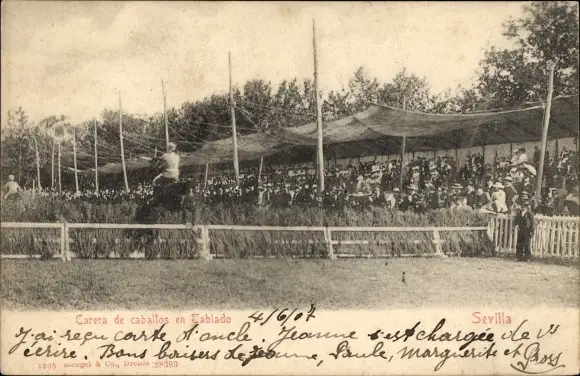 Carera de caballos en Tablado 4/6/07 Sevilla
J'ai reçu carte d'oncle Jeanne s'est chargée de v^s
écrire. Bons baisers de Jeanne, Paule, Marguerite et
1905 Stengel & Co., Dresde 28393